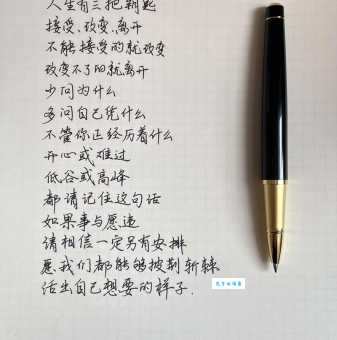 人生有三把钥匙
接受、改变、离开
不能接受的就改变
改变不了的就离开
少问为什么
多问自己凭什么
不管你正经历着什么
开心或难过
低谷或高峰
都请记住这句话
如果事与愿违
请相信一定另有安排
愿我们都能够披荆斩棘
活出自己想要的样子.